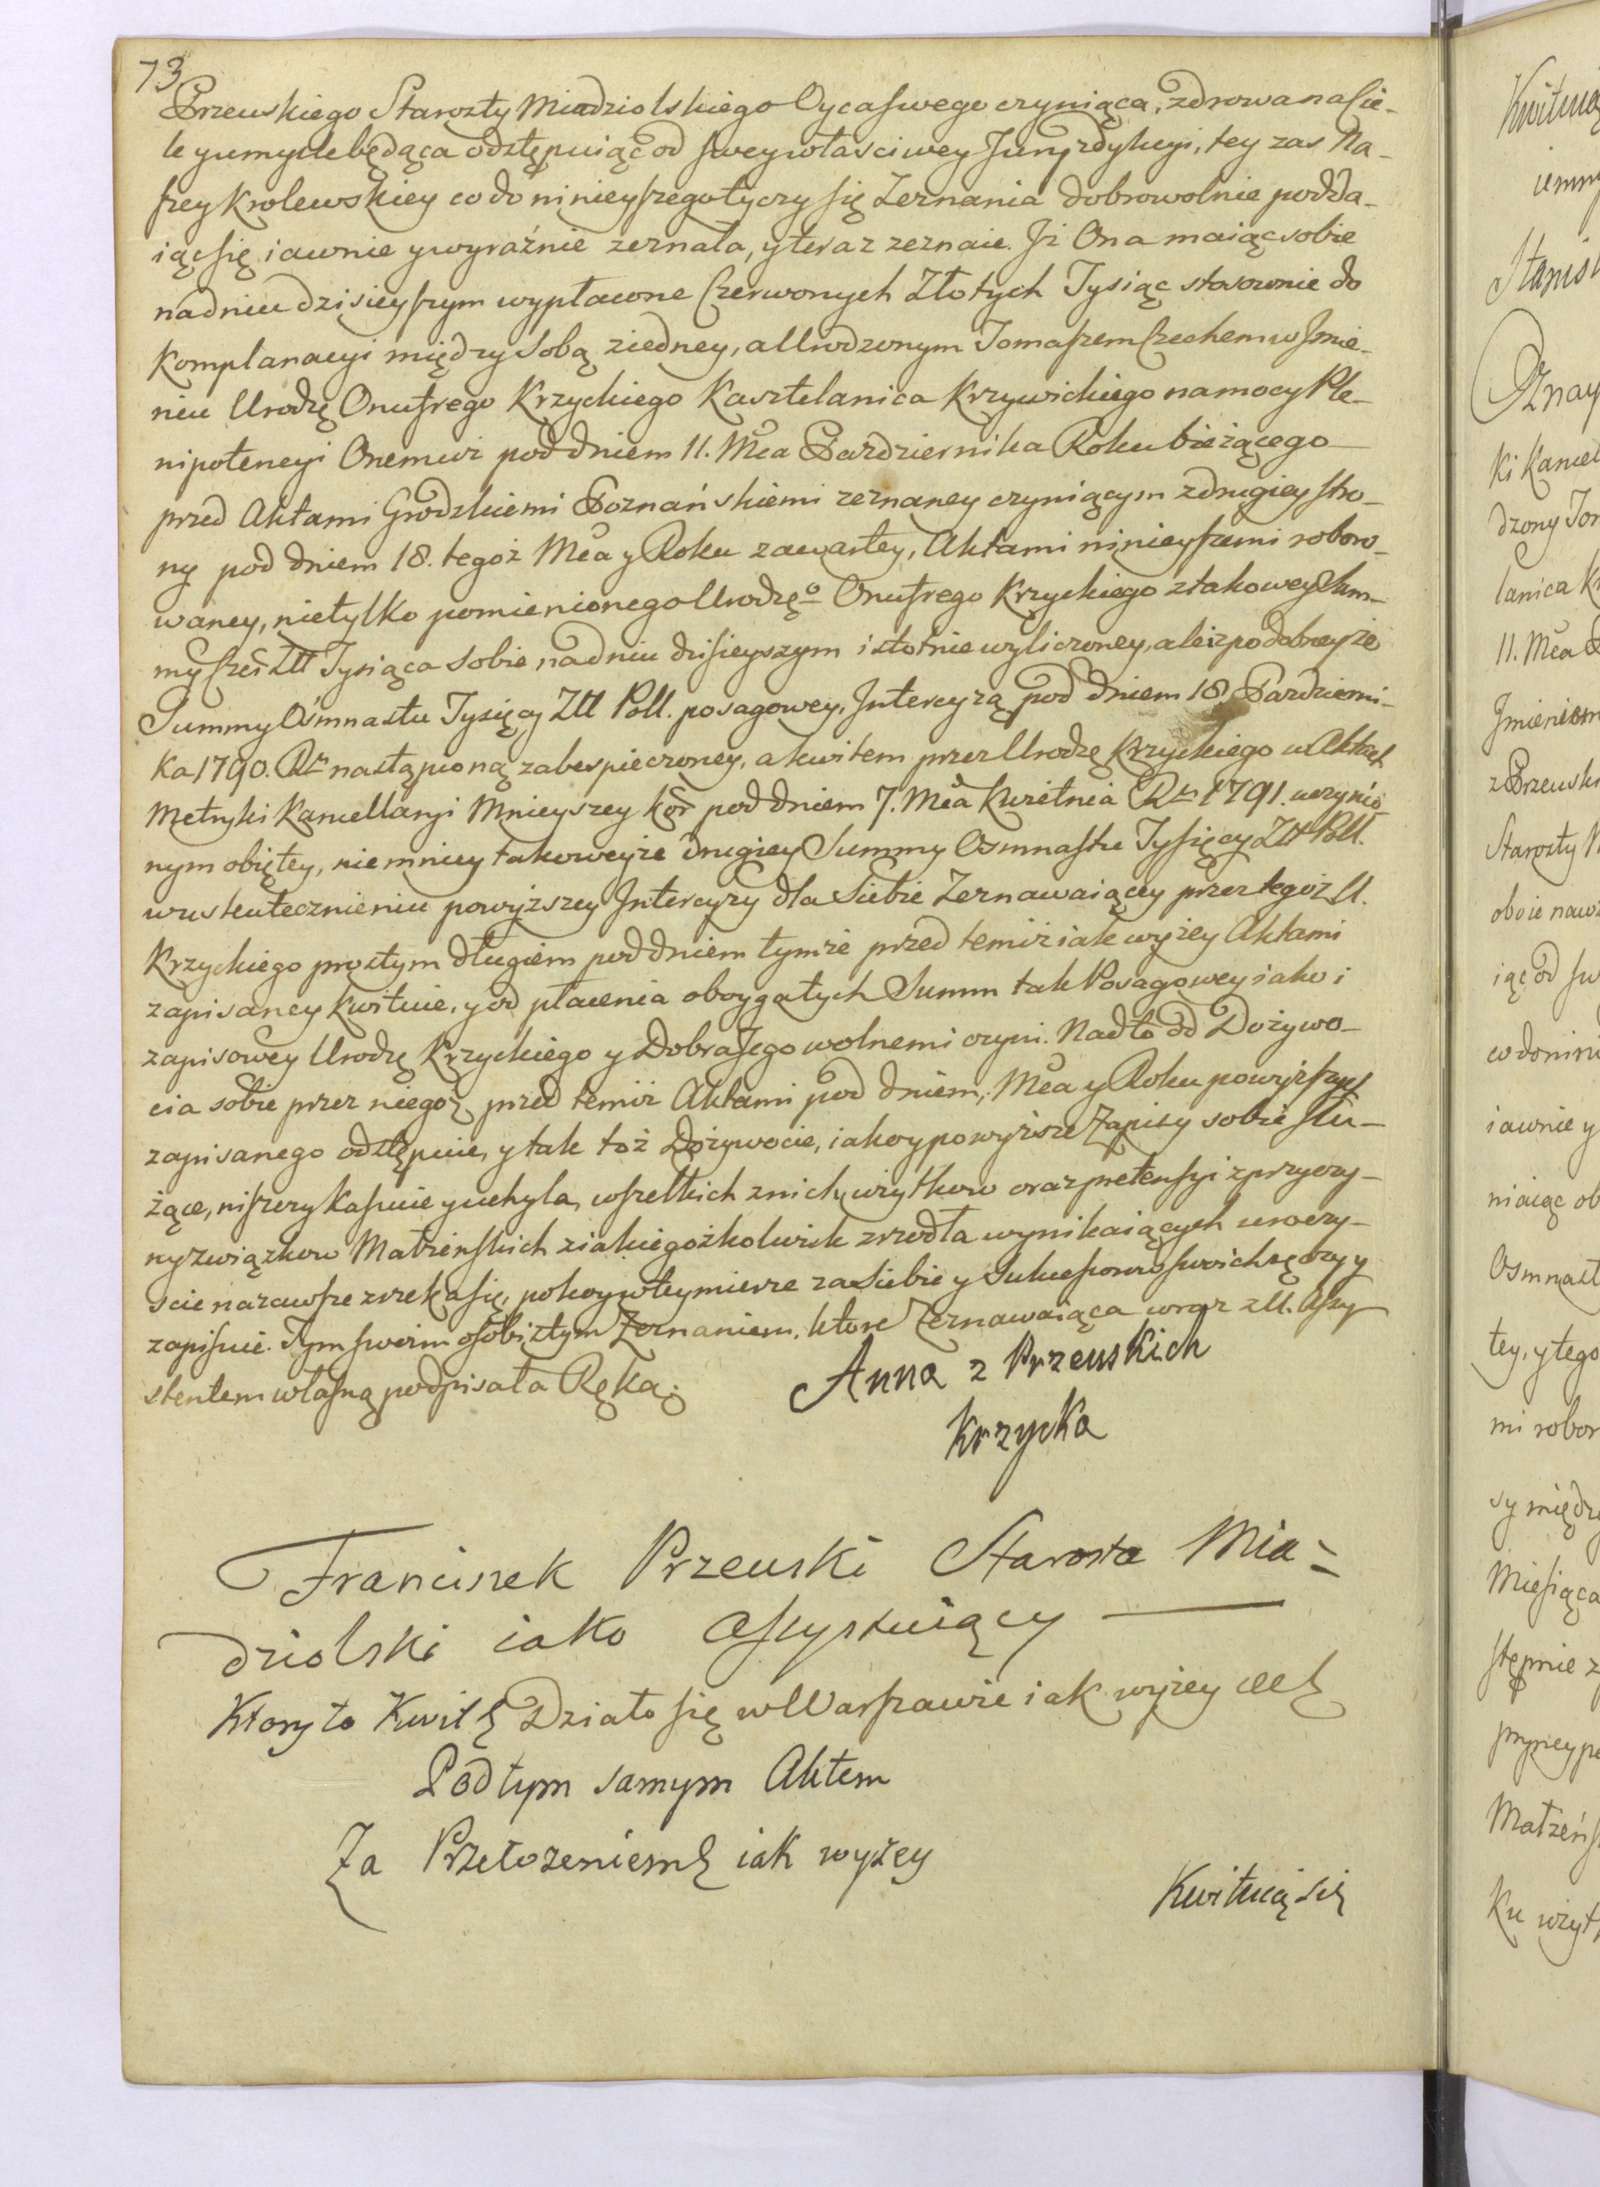 73
Przeuskiego Starozty Miadziolskiego Oyca swego czyniąca, zdrowa na Cie-
le y umyśle będąca odztępuiąc od swey własciwey Juryzdykcyi, tey zas Na-
szey Krolewskiey co do ninieyszego tyczy się Zeznania dobrowolnie podda-
iąc się iawnie y wyraźnie zeznała, y teraz zeznaie. Jż Ona maiąc sobie
na dniu dzisieyszym wypłacone Czerwonych Złotych Tysiąc stosownie do
Komplanacyi między Sobą ziedney, a Urodzonym Tomaszem Czechem w Jmie-
niu Urodzę Onufrego Krzyckiego Kasztelanica Krzywickiego na mocy Ple-
nipotencyi Onemuż pod dniem 11. Mca Pazdziernika Roku bieżącego
przed Aktami Grodzkiemi Poznańskiemi zeznaney czyniącym z drugiey stro-
ny pod dniem 18. tegoż Mca y Roku zawartey, Aktami ninieyszemi roboro-
waney, nietylko pomienionego Urodzęo Onufrego Krzyckiego z takowey Sum-
my Czer Złł Tysiąca Sobie na dniu dzisieyszym istotnie wyliczoney, ale iż podobneyże
Summy Ośmnastu Tysięcy Złł Poll. posagowey, Jntercyzą pod dniem 18. Pazdzierni-
ka 1790. Rku nastąpioną zabespieczoney, a kwitem przez Urodzę Krzyckiego w Aktach
Metryki Kancellaryi Mnieyszey Kor pod dniem 7. Mca Kwietnia Rku 1791. uczynio-
nym obiętey, niemniey takoweyże drugiey Summy Osmnastu Tysięcy Złł Poll.
w uskutecznieniu powyższey Jntercyzy dla Siebie Zeznawaiącey przez tegoż U.
Krzyckiego proztym długiem pod dniem tymże przed temiż iak wyżey Aktami
zapisaney kwituie, y od płacenia oboyga tych Summ tak Posagowey iako i
zapisowey Urodzę Krzyckiego y Dobra Jego wolnemi czyni. Nadto od Dożywo-
cia sobie przez niegoż przed temiż Aktami pod dniem, Mca y Roku powyższych
zapisanego odstępuie, y tak toż Dożywocie, iako y powyższe Zapisy sobie słu-
żące, niszczy kassuie y uchyla, wszelkich z nich użytkow oraz pretensyi z przyczy-
ny związkow Małżeńskich z iakiegożkolwiek zrzodła wynikaiących uroczy-
scie na zawsze zrzeka się, pokoy w tey mierze za Siebie y Sukcessorow swoich wieczny
zapisuie. Tym swoim osobistym Zeznaniem, ktore Zeznawaiąca wraz z U. Assy-
stentem własną podpisała Ręką.
Anna z Przeuskich
Krzycka
Franciszek Przeuski Starosta Mia=
dziolski iako Assystuiący
Ktory to Kwit Działo się w Warszawie iak wyżey
Pod tym samym Aktem
Za Przełożeniem iak wyżey
Kwituią się